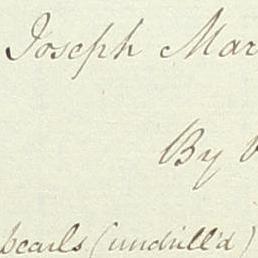 Joseph Mar
By
pearls (undrill'd)